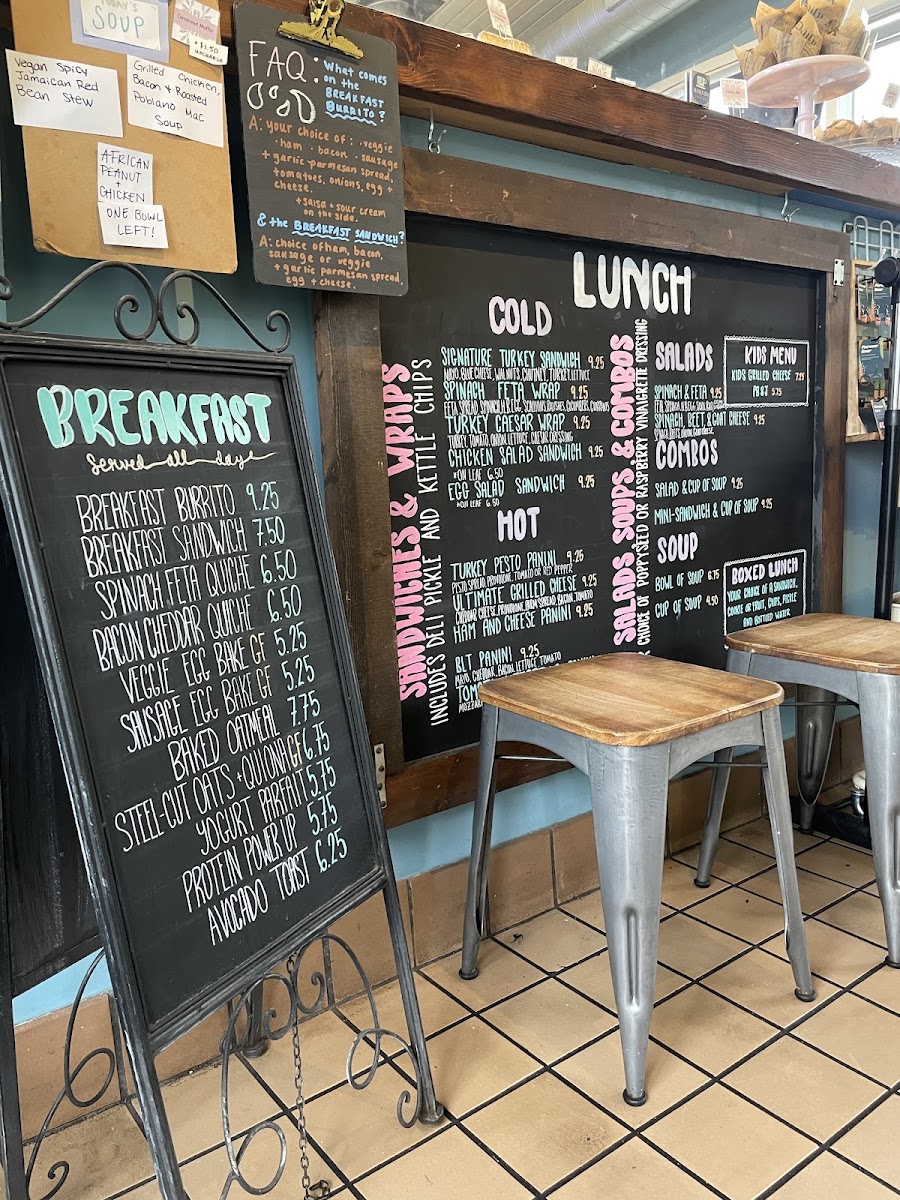 SOUP
+ $1.50
Vegan Spicy
Jamaican Red
Bean Stew
Grilled Chicken,
Bacon + Roasted
Poblano Mac
Soup
AFRICAN
PEANUT
+
CHICKEN
ONE BOWL
LEFT!
FAQ:
What comes
on the
BREAKFAST
BURRITO?
A: your choice of: · veggie
· ham · bacon · sausage
+ garlic-parmesan spread,
tomatoes, onions, egg +
cheese.
+ salsa + sour cream
on the side.
& the BREAKFAST SANDWICH?
A: choice of ham, bacon,
sausage or veggie
+ garlic parmesan spread,
egg + cheese.
BREAKFAST
served all day
BREAKFAST BURRITO 9.25
BREAKFAST SANDWICH 7.50
SPINACH FETA QUICHE 6.50
BACON CHEDDAR QUICHE 6.50
VEGGIE EGG BAKE GF 5.25
SAUSAGE EGG BAKE GF 5.25
BAKED OATMEAL 7.75
STEEL-CUT OATS + QUIONA GF 6.75
YOGURT PARFAIT 5.75
PROTEIN POWER UP 5.75
AVOCADO TOAST 6.25
LUNCH
SANDWICHES & WRAPS
INCLUDES DELI PICKLE AND KETTLE CHIPS
COLD
SIGNATURE TURKEY SANDWICH 9.25
MAYO, BLUE CHEESE, WALNUTS, CHUTNEY, TURKEY, LETTUCE
SPINACH FETA WRAP 9.25
TURKEY CAESAR WRAP 9.25
TURKEY, TOMATO, ONION, LETTUCE, CAESAR DRESSING
CHICKEN SALAD SANDWICH 9.25
*ON LEAF 6.50
EGG SALAD SANDWICH 9.25
*ON LEAF 6.50
HOT
TURKEY PESTO PANINI 9.25
PESTO SPREAD, PROVOLONE, TOMATO OR RED PEPPER
ULTIMATE GRILLED CHEESE 9.25
CHEDDAR CHEESE, PROVOLONE, PARM SPREAD, BACON, TOMATO
HAM AND CHEESE PANINI 9.25
BLT PANINI 9.25
MAYO, CHEDDAR, BACON, LETTUCE, TOMATO
SALADS SOUPS & COMBOS
CHOICE OF POPPYSEED OR RASPBERRY VINAIGRETTE DRESSING
SALADS
SPINACH & FETA 9.25
SPINACH, BEET, & GOAT CHEESE 9.25
COMBOS
SALAD & CUP OF SOUP 9.25
MINI-SANDWICH & CUP OF SOUP 9.25
SOUP
BOWL OF SOUP 6.75
CUP OF SOUP 4.50
KIDS MENU
KIDS GRILLED CHEESE 7.25
PB & J 5.75
BOXED LUNCH
YOUR CHOICE OF A SANDWICH,
COOKIE OR FRUIT, CHIPS, PICKLE
AND BOTTLED WATER